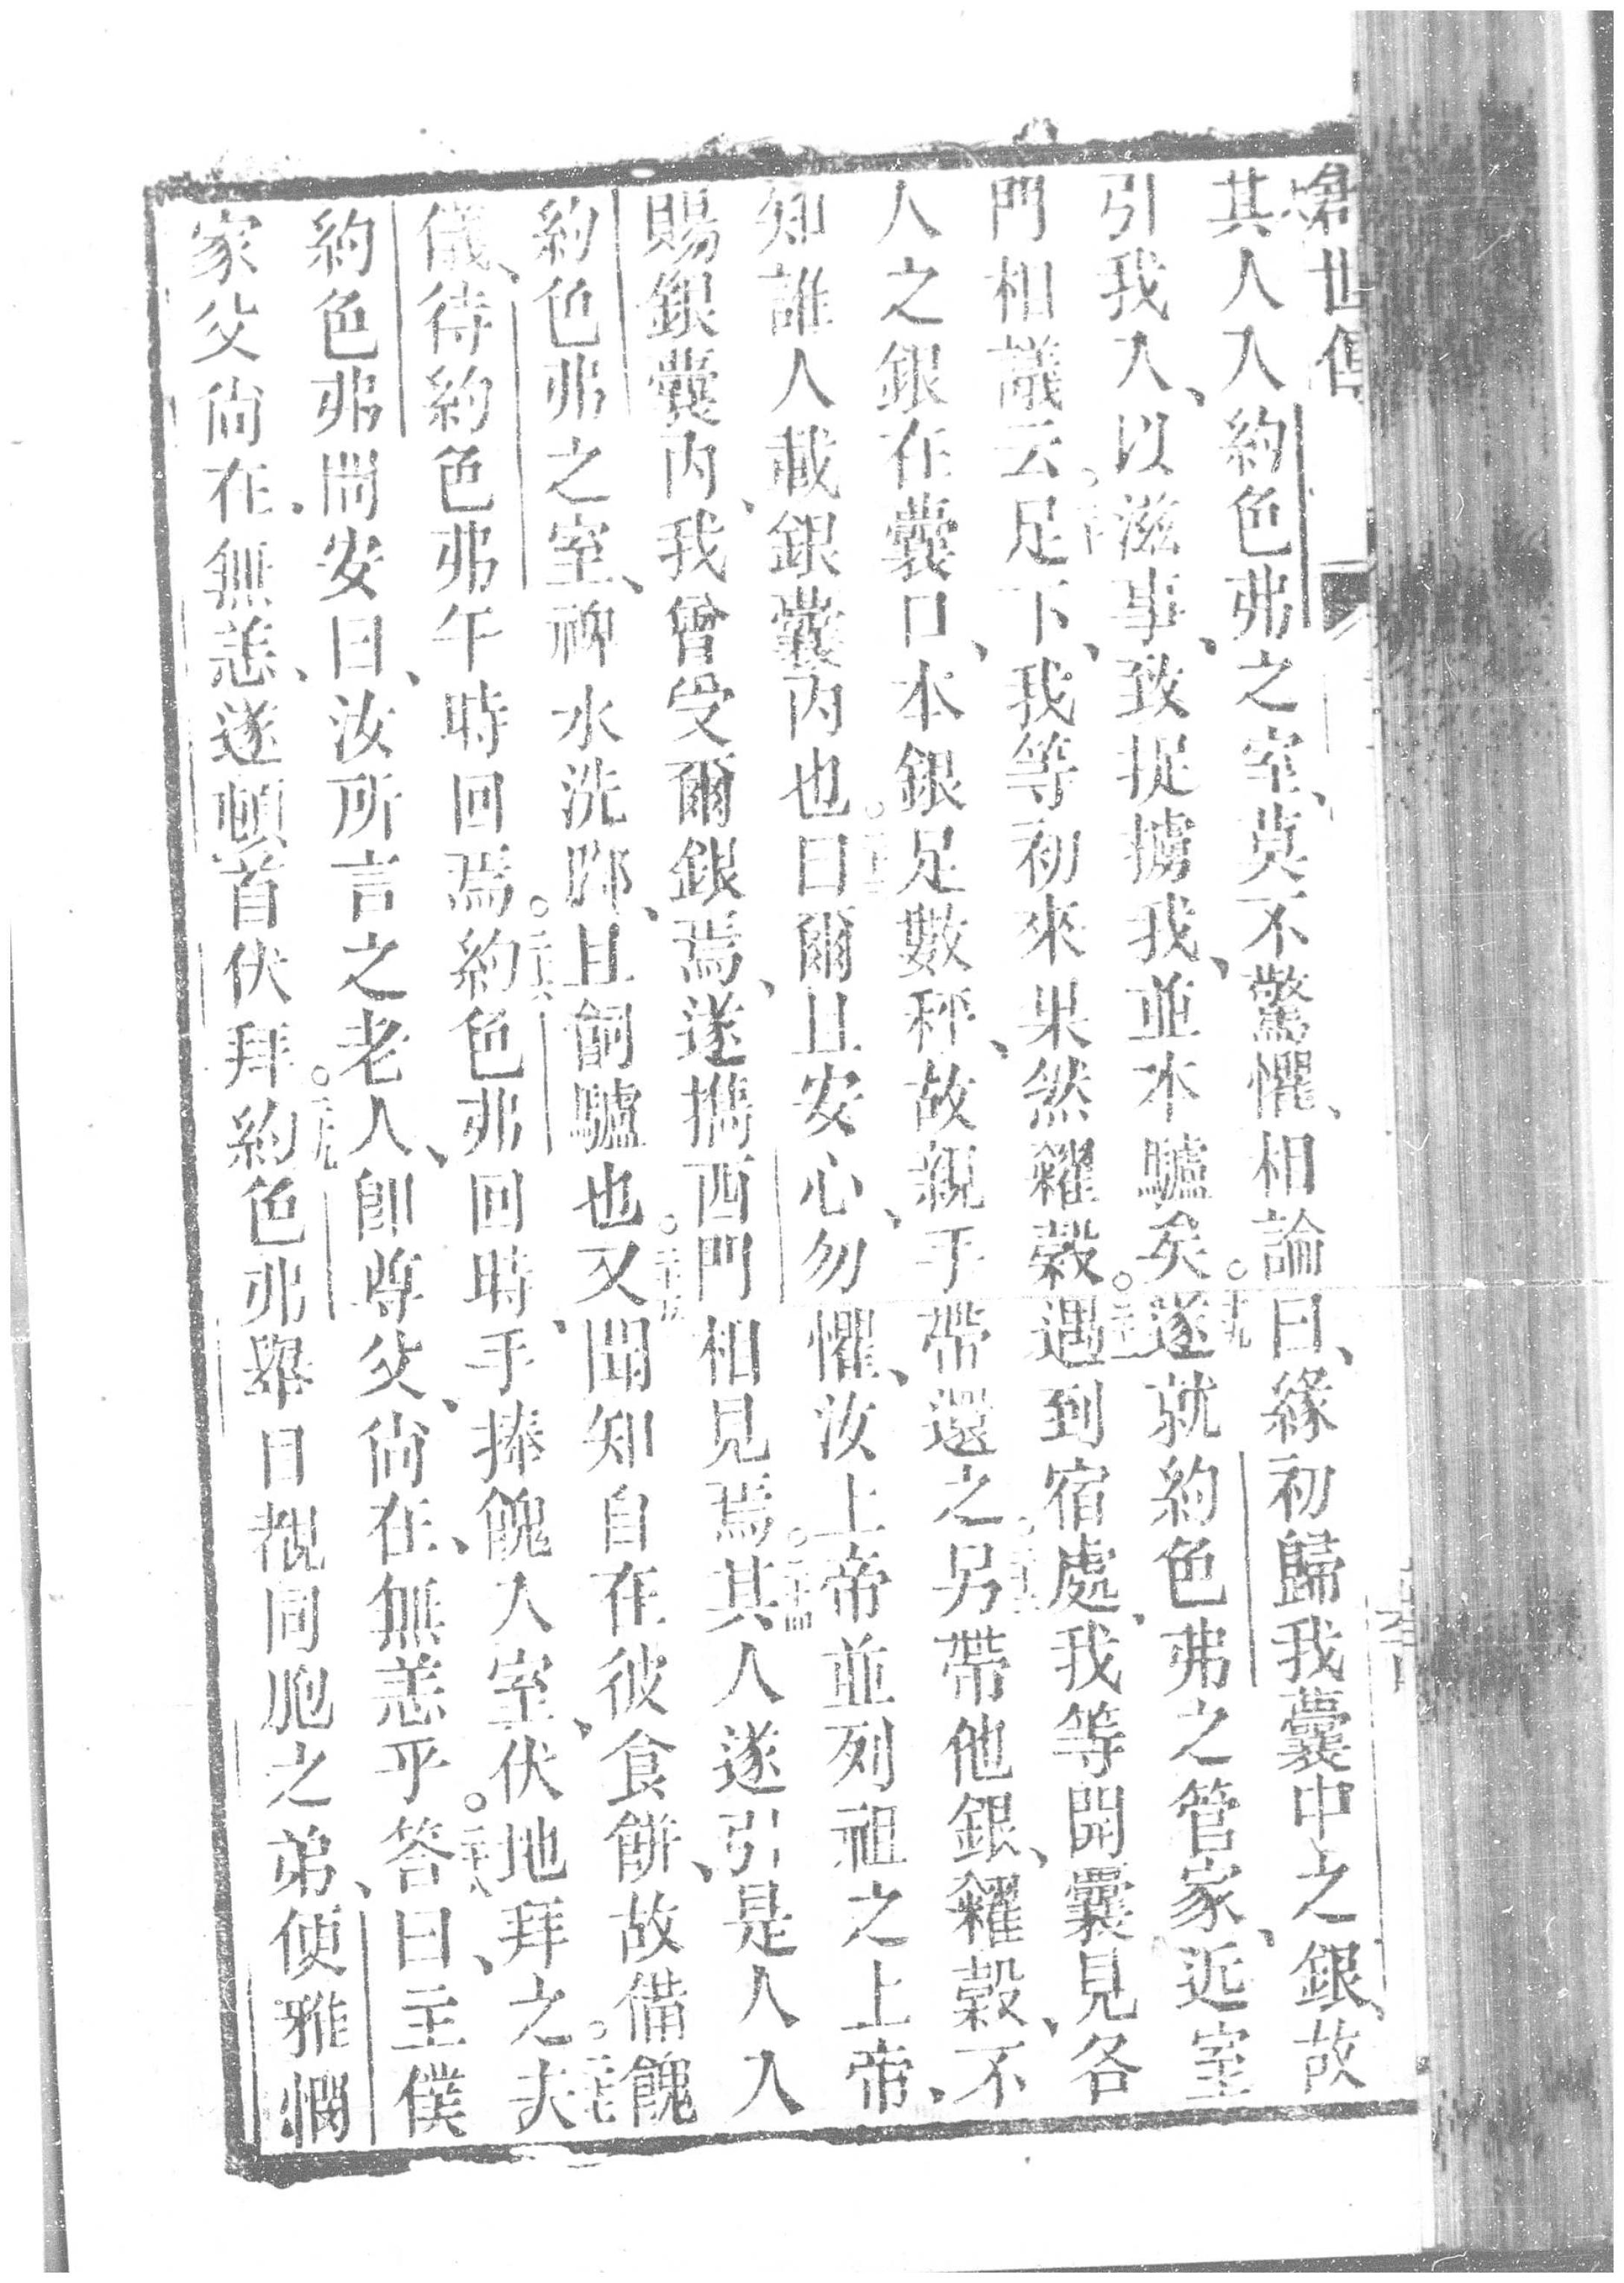 其人入約色弗之室、莫不驚懼、相論曰、緣初歸我囊中之銀、故
引我入、以滋事、致捉擄我、並本驢矣。十九遂就約色弗之管家、近室
門相議云、二十足下、我等初來果然糴穀。二十一遇到宿處、我等開囊見各
人之銀在囊口、本銀足數秤、故親手帶還之。二十二另帶他銀、糴穀、不
知誰人載銀囊內也。二十三曰爾且安心、勿懼、汝上帝並列祖之上帝、
賜銀囊內、我曾受爾銀焉、遂攜西門相見焉。二十四其人遂引是人入
約色弗之室、裨水洗腳、且飼驢也。二十五又聞知自在彼食餅、故備餽
儀、待約色弗午時回焉。二十六約色弗回時、手捧餽入室、伏地拜之。二十七夫
約色弗問安曰、汝所言之老人、卽尊父、尙在、無恙乎。二十八答曰、主僕
家父尙在、無恙、遂頓首伏拜。二十九約色弗舉目覩同胞之弟、便雅憫